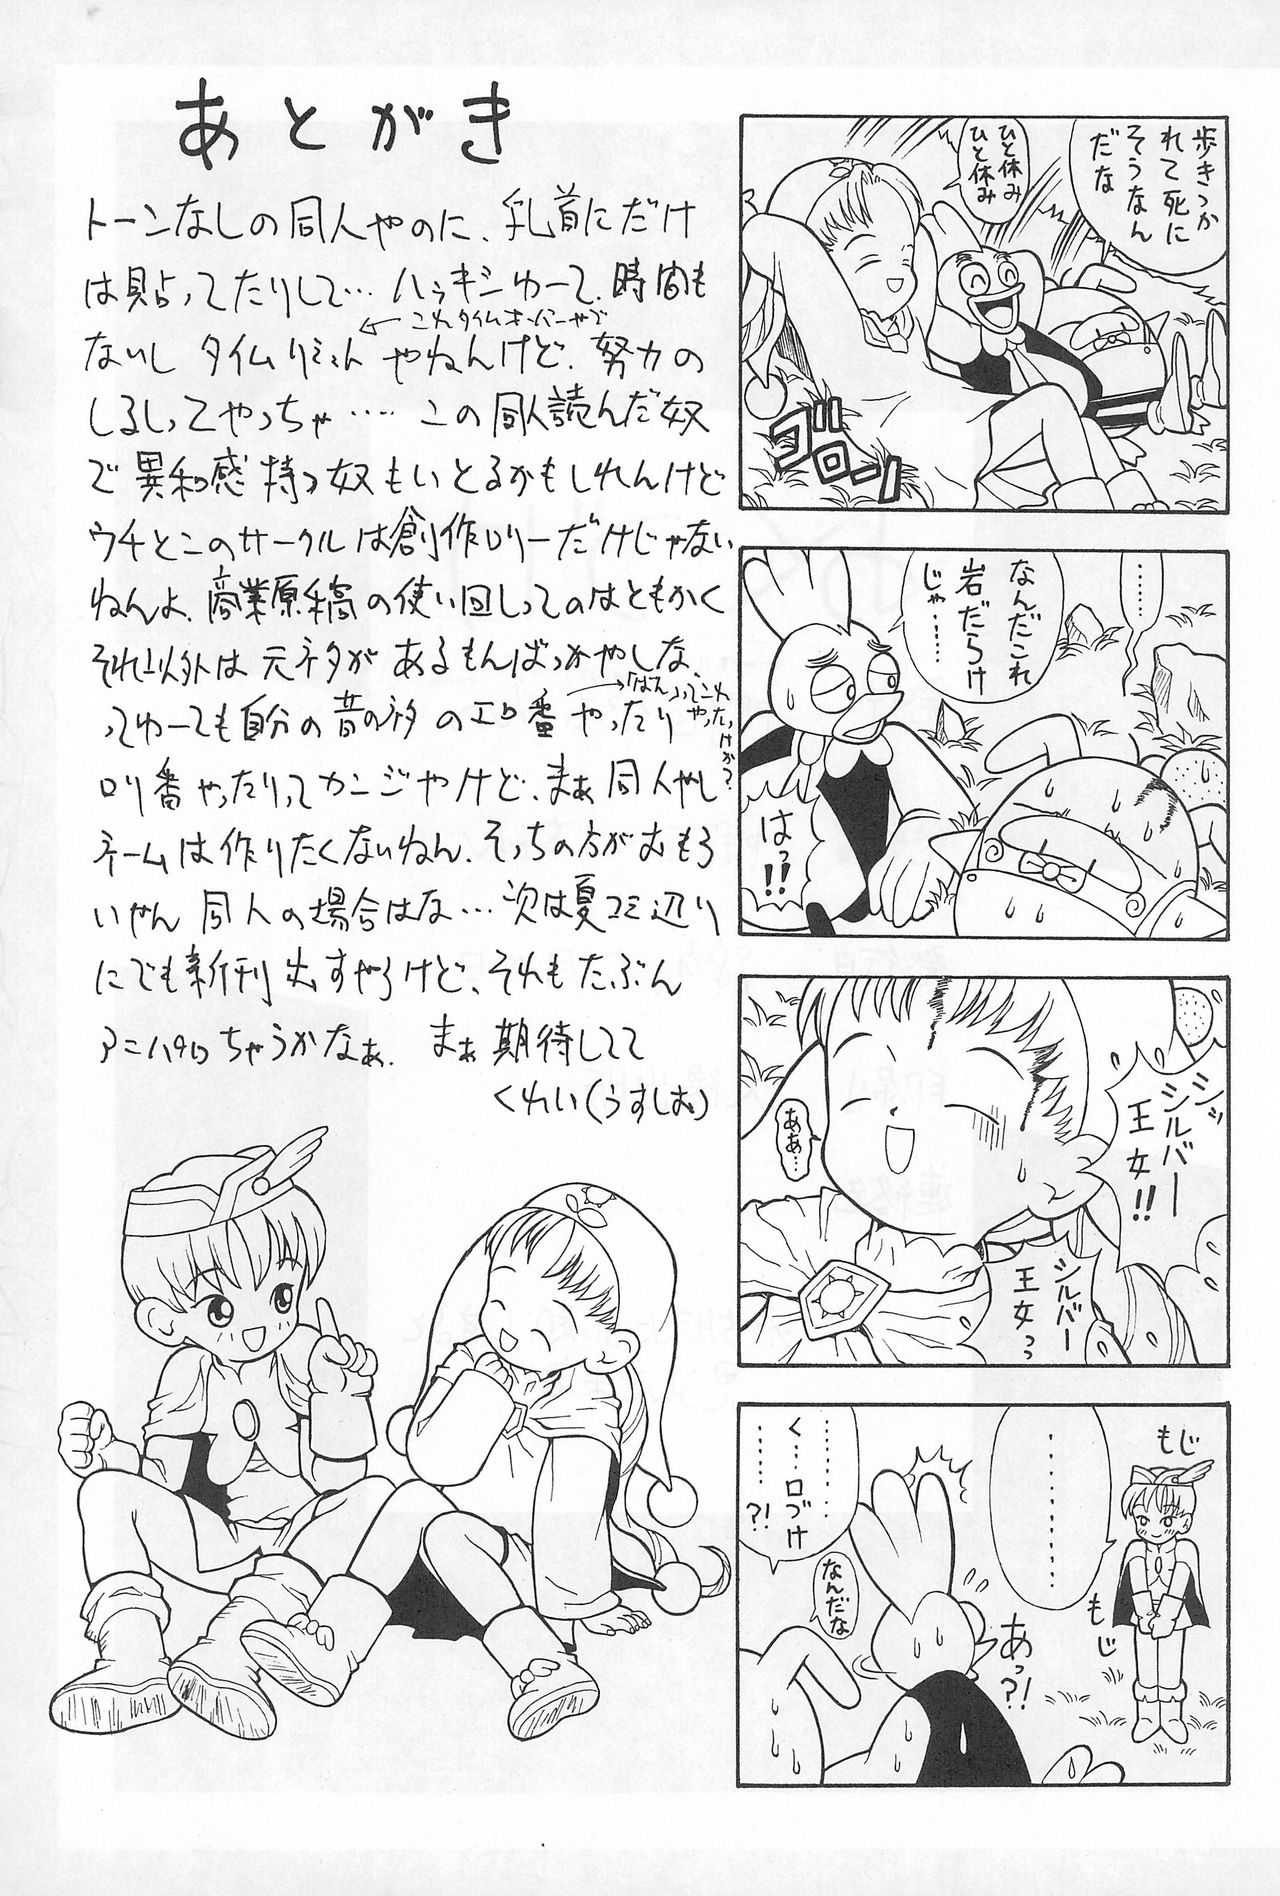 あとがき
トーンなしの同人やのに、乳首にだけ
は貼ってたりして…ハッキシゆーて、時間も
ないし タイムリミット やねんけど、努力の
←これタイムオーバーやで
しるしってやっちゃ……この同人読んだ奴
で異和感持つ奴もいとるかもしれんけど
ウチとこのサークルは創作ロリーだけじゃない
ねんよ、商業原稿の使い回しってのはともかく
それ以外は元ネタがあるもんばっかやしな、
ってゆーても自分の昔のネタのエロ番やったり
→「ばん」ってこれやったっけか?
ロリ番やったりってカンジやけど、まぁ同人やし
ネームは作りたくないねん、そっちの方がおもろ
いやん 同人の場合はな…次は夏コミ辺り
にでも新刊出すやろけど、それもたぶん
アニパロちゃうかなぁ、まぁ期待してて
くれい(うすしお)
歩きつか
れて死に
そうなん
だな
ひと休み
ひと休み
ゴローン
………
なんだこれ
岩だらけ
じゃ……
はっ!!
シッ
シルバー
王女!!
シルバー
王女っっ
ああ…
もじ
もじ
…………
あっ?!
………
く…口づけ
……?!
なんだな